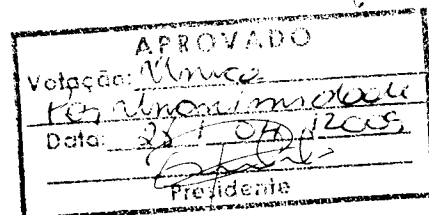 APROVADO
Votação: Única
Por Unanimidade
Data: 28 / 04 / 2009
Presidente